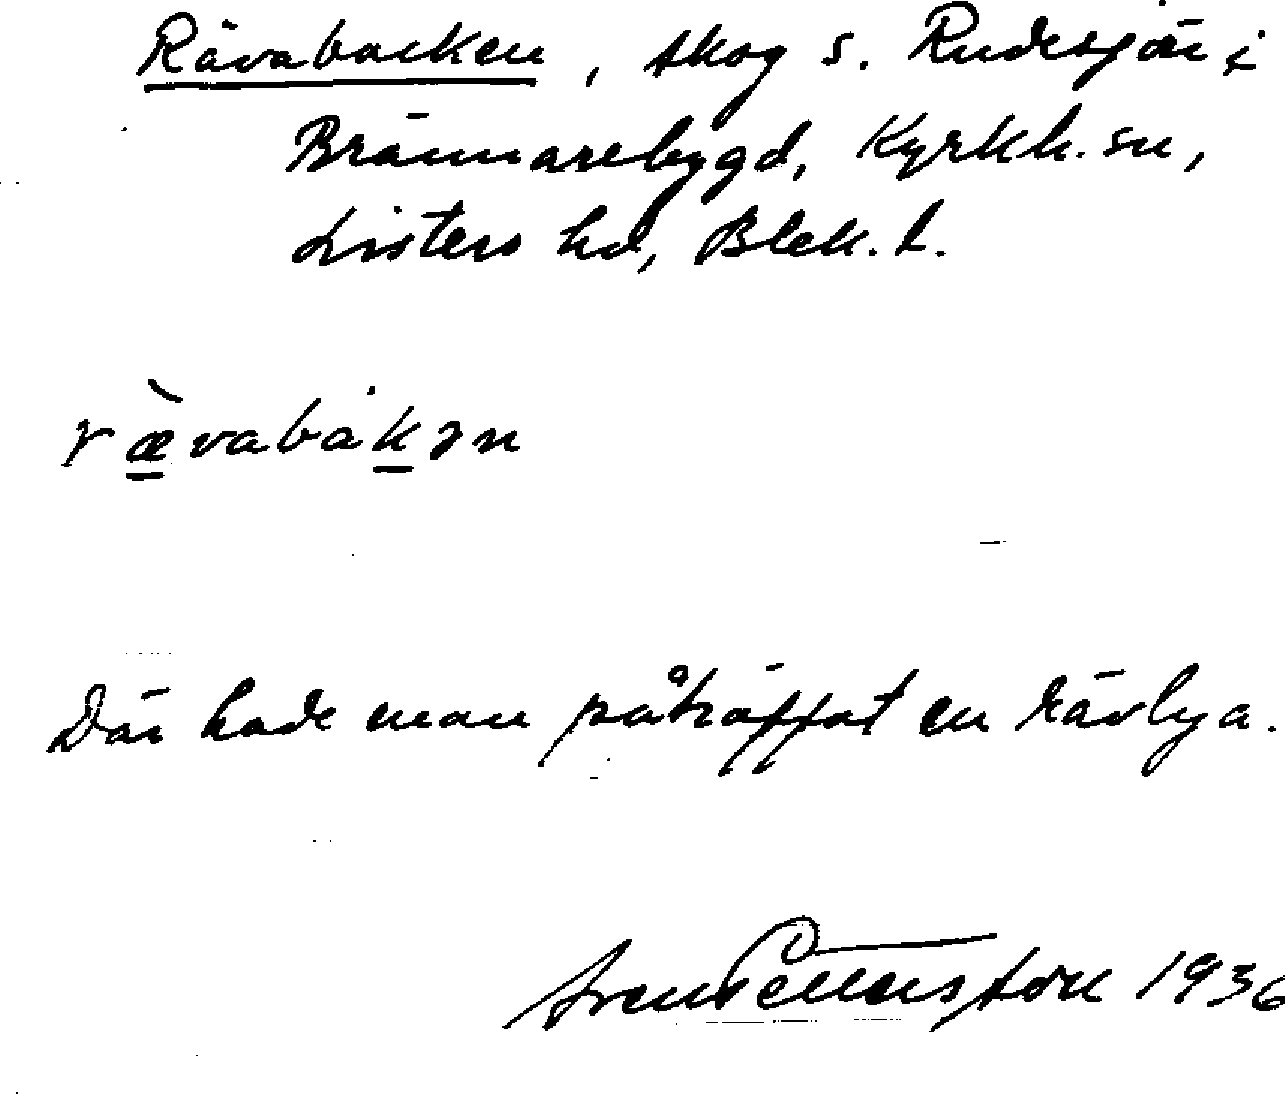 Rävabacken, skog s. Rudesjön i
Brännarebygd, Kyrkh. sn,
Listers hd, Blek. l.
rævabakən
Där hade man påträffat en rävlya.
Sven Petterson 1936